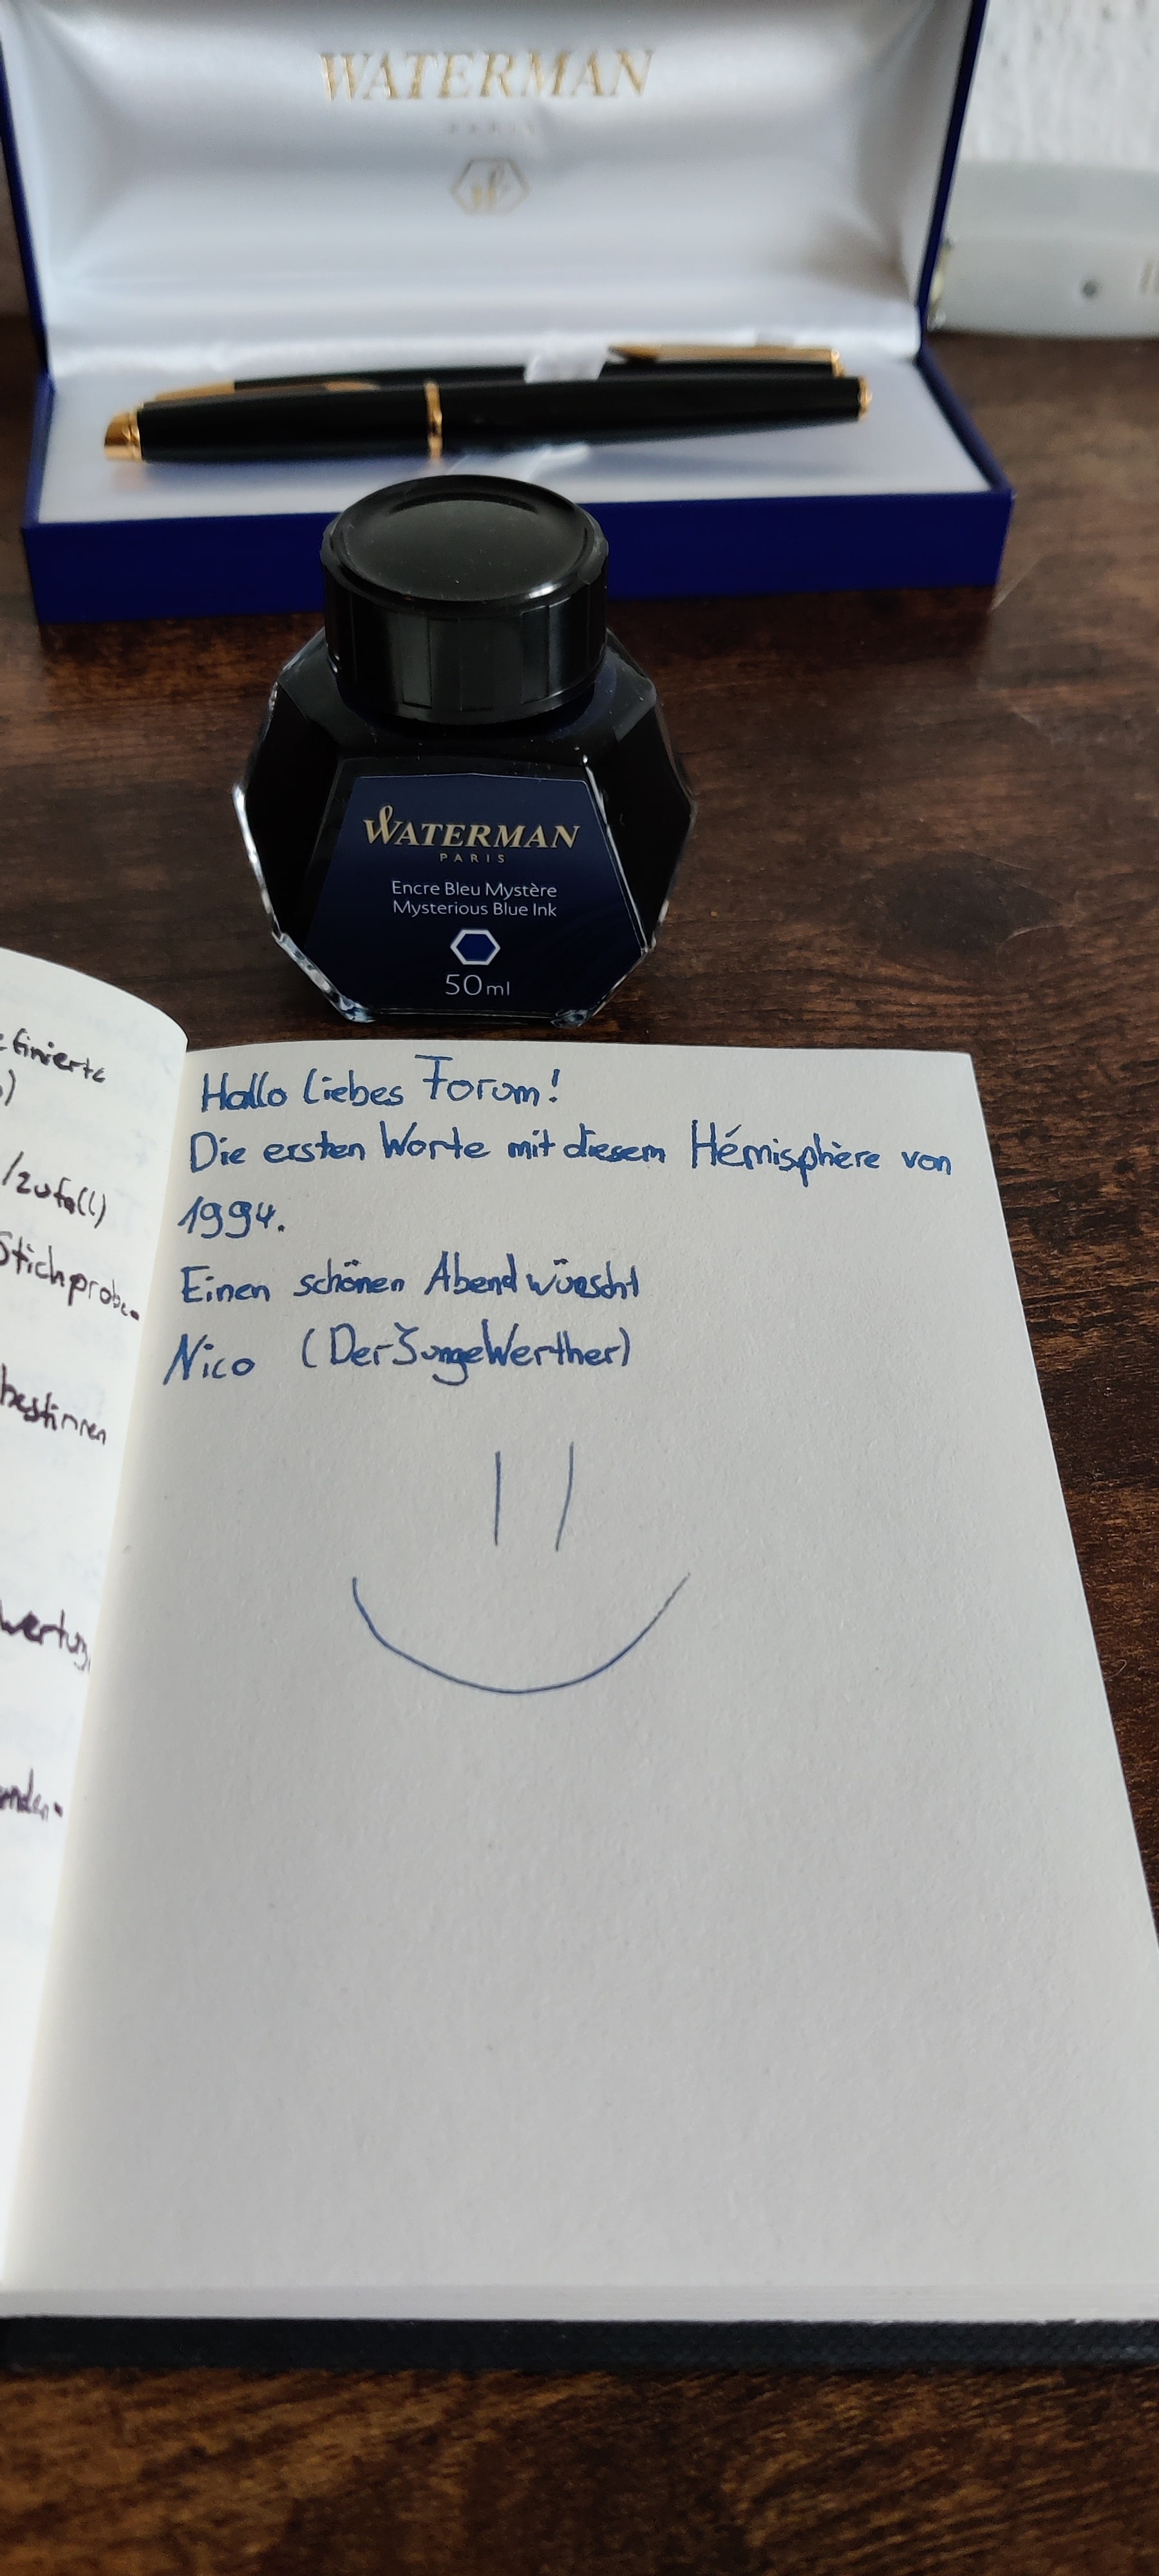 WATERMAN
PARIS
WATERMAN
PARIS
Encre Bleu Mystère
Mysterious Blue Ink
50ml
efinierte
/zufall)
Stichprobe-
bestimmen
wertung
enden-
Hallo liebes Forum!
Die ersten Worte mit diesem Hémisphère von
1994.
Einen schönen Abend wünscht
Nico (DerJungeWerther)